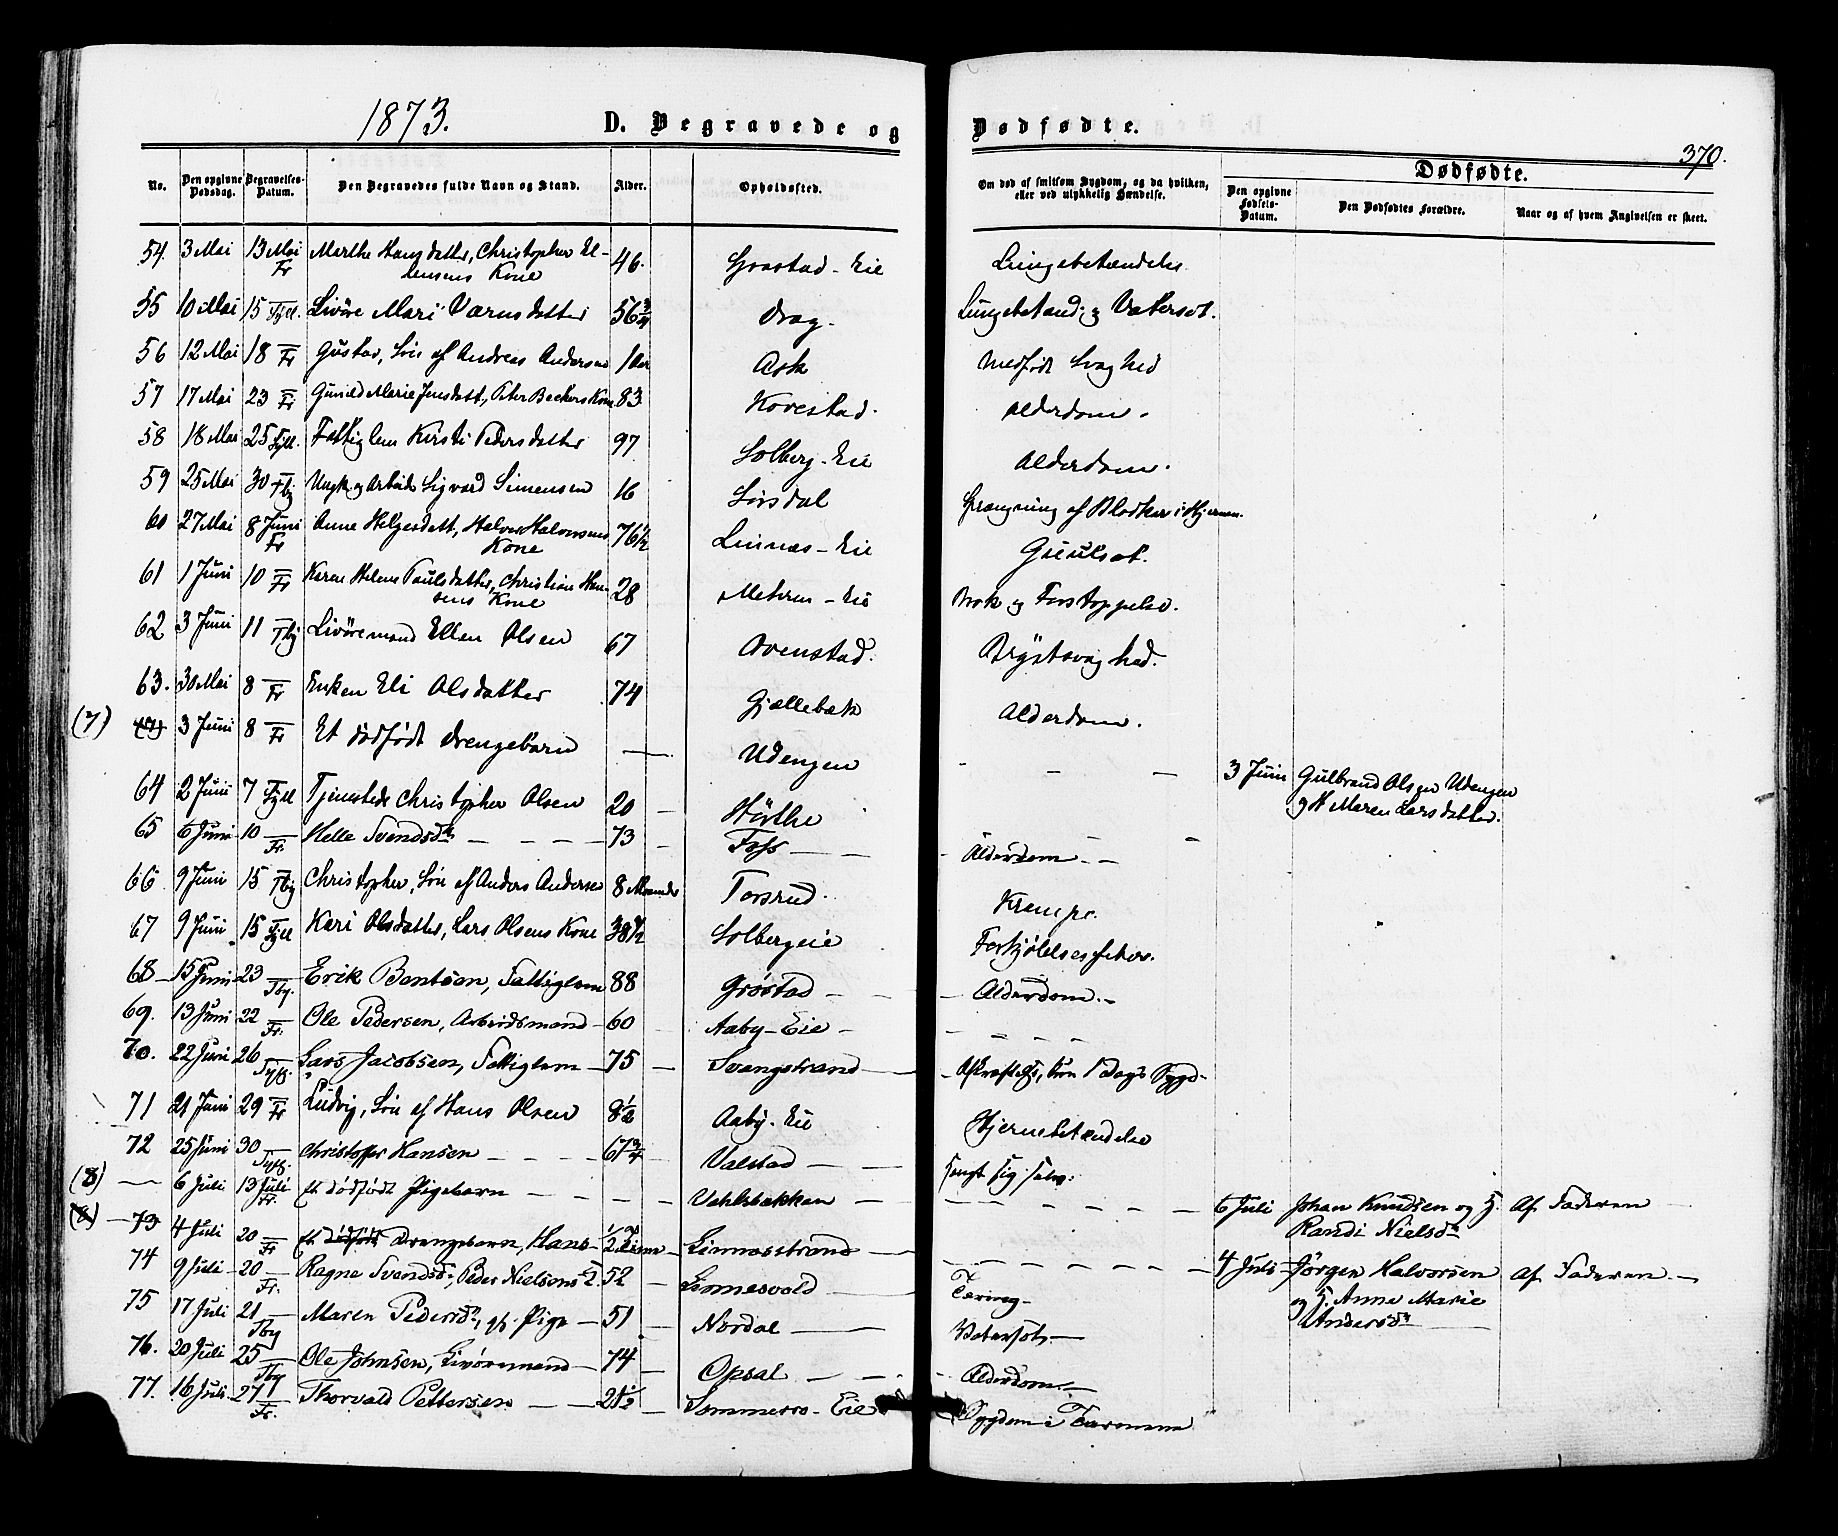 1873.
D. Begravede og
Dødfødte.
370.
No.
Den opgivne Dødsdag.
Begravelses-Datum.
Den Begravedes fulde Navn og Stand.
Alder.
Opholdssted.
Om død af smitsom Sygdom, og da hvilken,
eller ved ulykkelig Hændelse.
Dødfødte.
Den opgivne Fødsels-Datum.
Den Dødfødtes Forældre.
Naar og af hvem Angivelsen er skeet.
54 3 Mai 13 Mai Fr Marthe Hansdatter, Christopher El-
lensens Kone 46. Grøstad-Eie Lungebetændelse
55 10 Mai 15 — Syll. Livøre Mari 56 3/4 Drag. Lungebetænd. og Vatersot.
56 12 Mai 18 — Fr Gustav, Søn af Andreas Andersen 1 Aar Ask Medfødt Svaghed
57 17 Mai 23 — Fr Gunild Marie Jensdatt., Peter Beckers Kone 83 Kovestad. Alderdom.
58 18 Mai 25 Syll. Fattiglem Kirsti Pedersdatter 97 Solberg-Eie Alderdom.
59 25 Mai 30 — Tbg Ungk. og Arbeids. Sigvard Simensen 16 Sørsdal Sprængning af Blodkar i Hjernen.
60 27 Mai 8 Juni Fr Anne Helgesdatt., Halvor Halvorsens
Kone 76 1/2 Linnæs-Eie Guulsot.
61 1 Juni 10 — Fr Karen Helene Paulsdatter, Christian Han-
sens Kone 28 Meheren-Eie Brok og Forstoppelse.
62 3 Juni 11 — Tbg Livøremand Ellen Olsen 67 Ovenstad. Brystsvaghed.
63. 30 Mai 8 — Fr Enken Eli Olsdatter 74 Gjællebæk Alderdom.
(7) (7) 3 Juni 8 — Fr Et dødfødt Drengebarn — Udengen — — — 3 Juni Gulbrand Olsen Udengen
og H. Maren Larsdatter.
64 2 Juni 7 Syll Tjenestedr. Christopher Olsen 20 — Hørthe
65 6 Juni 10 — Fr. Helle Svendsdr — — — — 73 — Foss — — Alderdom — —
66 9 Juni 15 Tbg Christopher, Søn af Anders Andersen 8 Maaneder Torsrud. Krampe.
67 9 Juni 15 Syll Kari Olsdatter, Lars Olsens Kone 38 1/2 Solbergeie Forkjølelsesfeber.
68 — 15 Juni 23 — Tbg. Erik Bentsen, Fattiglem 88 Grøstad — — — Alderdom. —
69. 13 Juni 22 — Fr. Ole Pedersen, Arbeidsmand — 60 — Aaby-Eie — — — — —
70. 22 Juni 26 — Syll. Lars Jacobsen, Fattiglem — 75 — Svangstrand — — Afkræftelse, kun 1 Dags Sygd—
71 21 Juni 29 — Fr Ludvig, Søn af Hans Olsen 8 1/2 Aaby-Eie Hjernebetændelse
72 25 Juni 30 — Syll. Christoffer Hansen — — — — 67 3/4 — Valstad — — hængt sig selv.
(8) — 6 Juli 13 Juli Fr. et dødfødt Pigebarn — — — — — Vahlsbakken — — — — — — — 6 Juli Johan Knudsen og H. Af Faderen —
Randi Nielsdr
(8) — 73 4 Juli 20 — Fr et dødfødt Drengebarn, Hans — 1/2 Time — Linnesstrand — — — — — — — — 4 Juli — Jørgen Halvorsen Af Faderen —
og H. Anne Marie
Andersdr
74 9 Juli — 20 — Fr. Ragne Svendsdr, Peder Nielsens E. 52 — Linnesvold — Tæring —
75 17 Juli 21 — Tbg Maren Pedersdr, gft. Pige — 51 — Nordal — Vatersot —
76. 20 Juli 25 — Tbg Ole Johnsen, Livøremand — 74 — Opsal — — — Alderdom —
77. 16 Juli 27 — Fr. Thorvald Pettersen — — 21 1/2 — Sommerro-Eie Sygdom i Tarmene